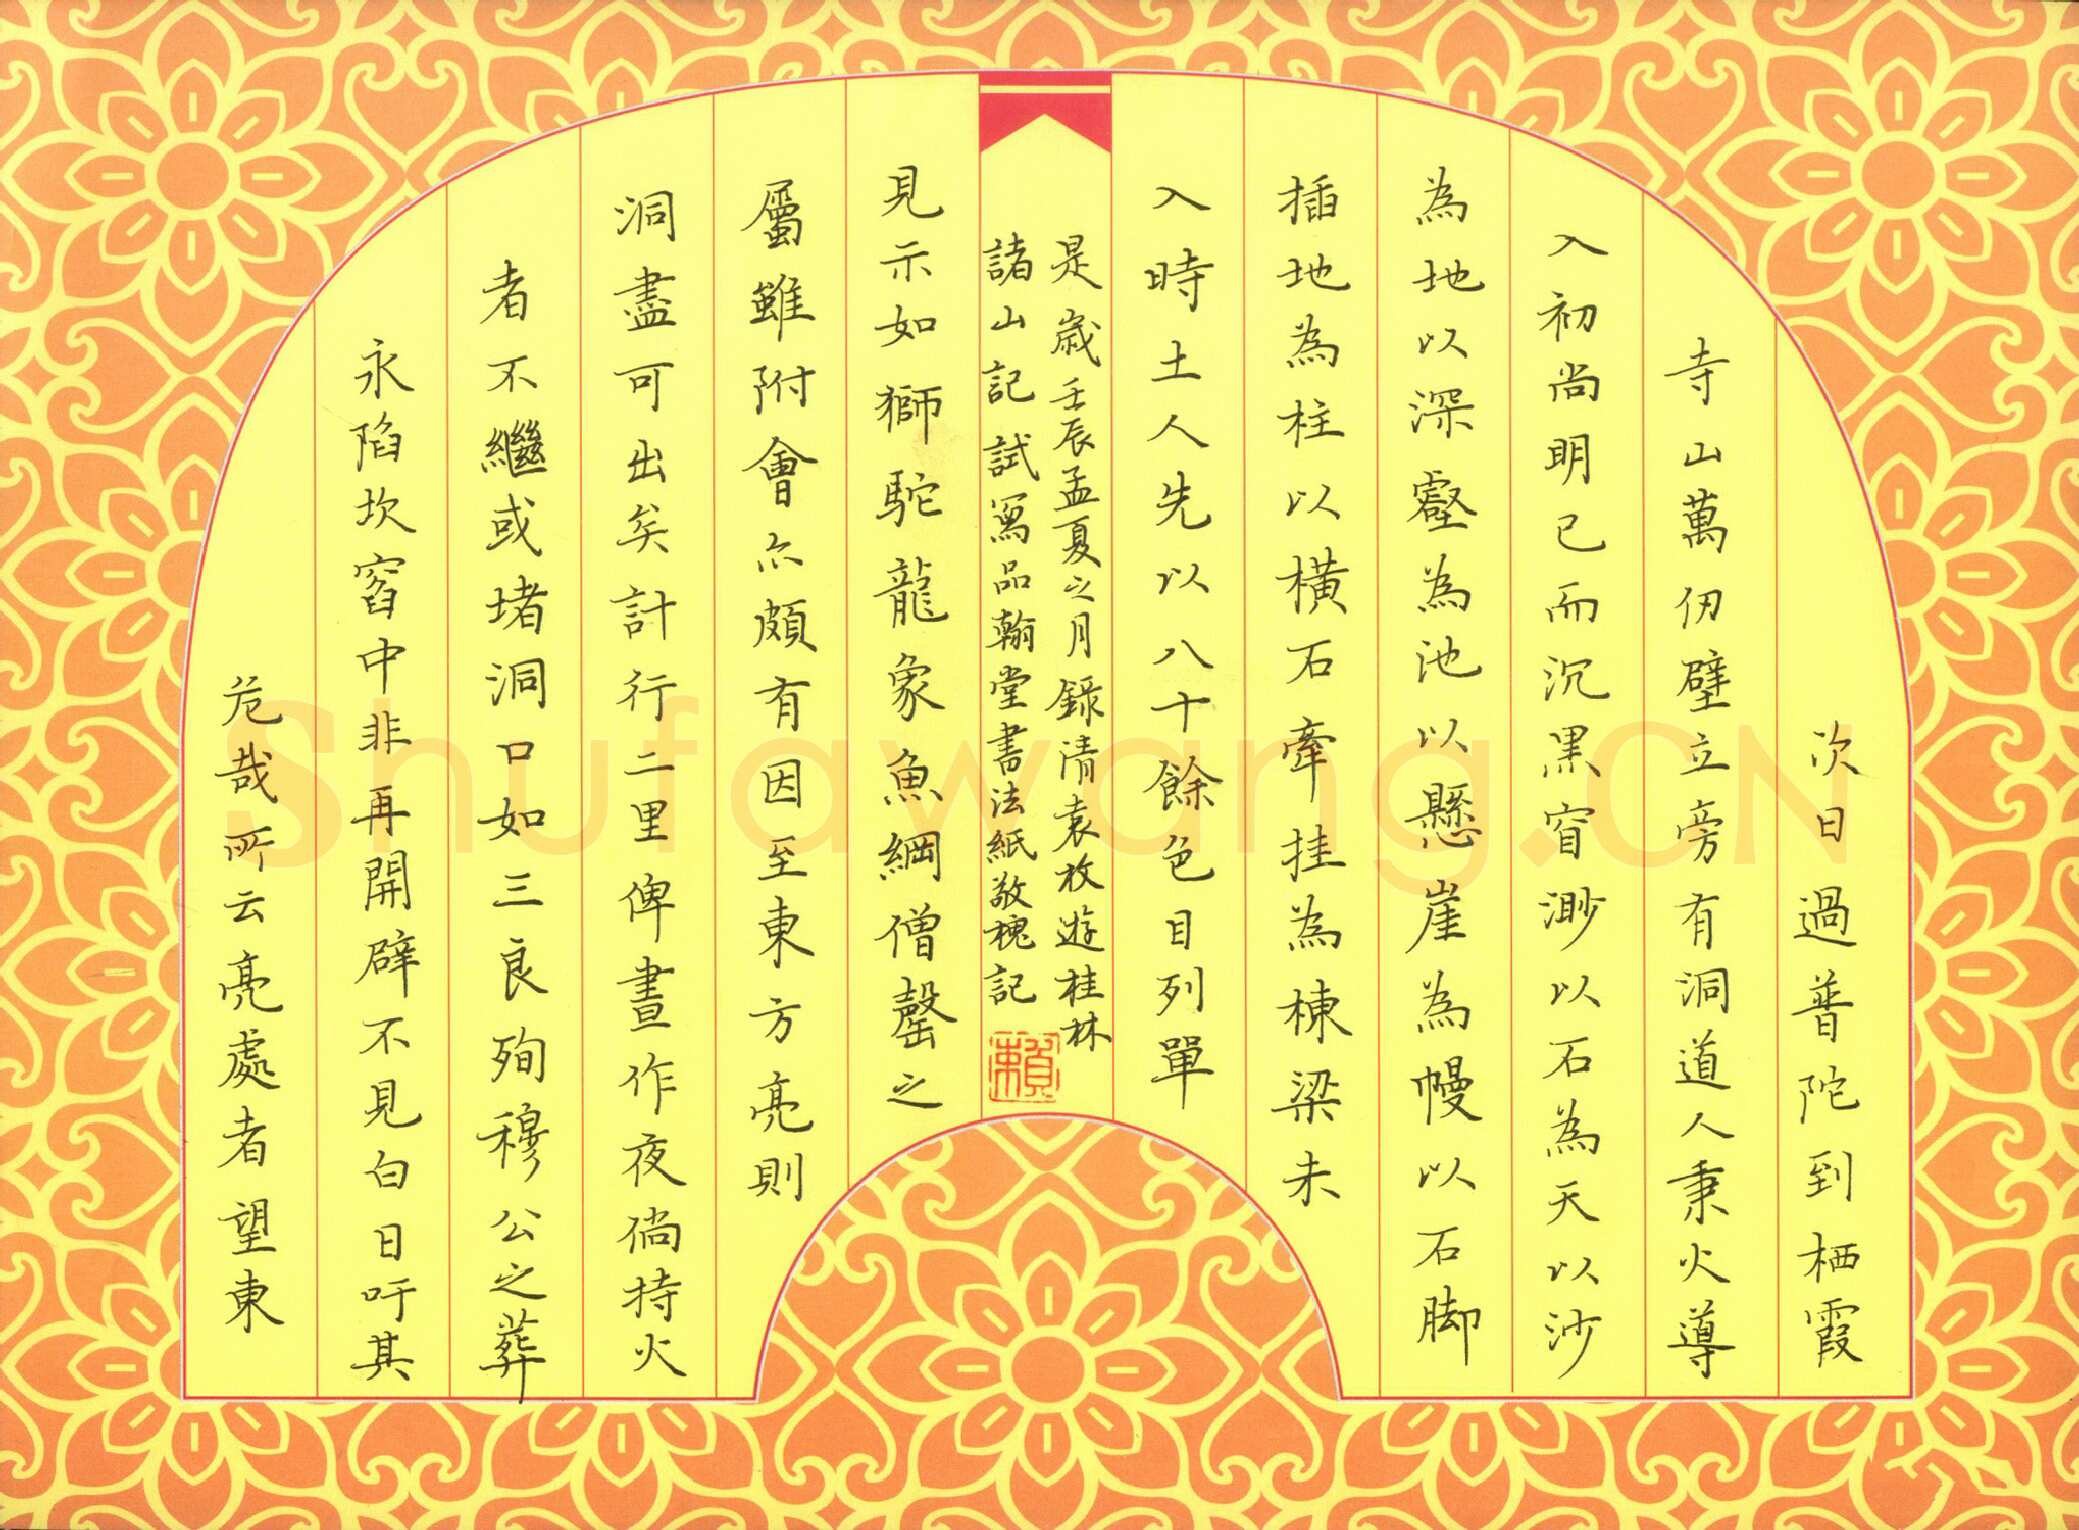 次日過普陀到栖霞
寺山萬仞壁立旁有洞道人秉火導
入初尚明已而沉黑窅渺以石為天以沙
為地以深壑為池以懸崖為幔以石脚
插地為柱以橫石牽挂為棟梁未
入時土人先以八十餘色目列單
是歲壬辰孟夏之月錄清袁枚遊桂林
諸山記試寫品翰堂書法紙敬槐記
賴
見示如獅駝龍象魚網僧罄之
屬雖附會亦頗有因至東方亮則
洞盡可出矣計行二里俾晝作夜倘持火
者不繼或堵洞口如三良殉穆公之葬
永陷坎窞中非再開辟不見白日吁其
危哉所云亮處者望東
Shufawang.CN